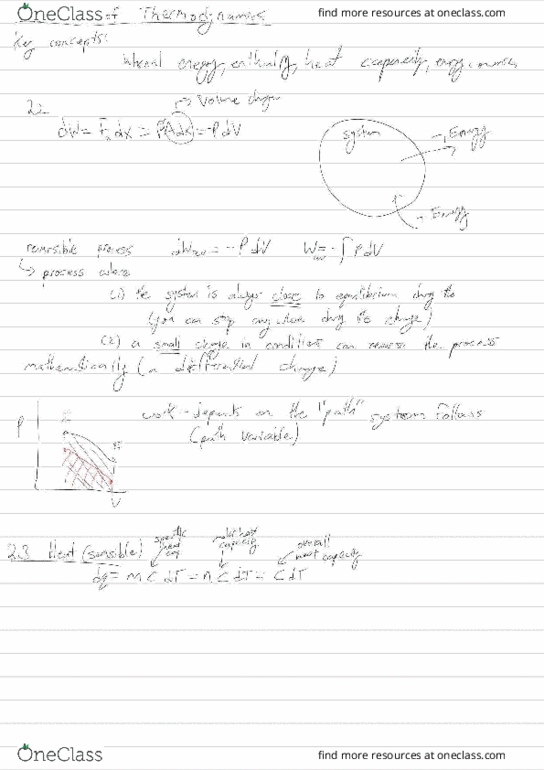 OneClass of Thermodynamics find more resources at oneclass.com
Key concepts:
internal energy, enthalpy, heat capacity, energy
→ Volume change
2.2
dW = Fx dx = PA dx = -P dV
system
→ Energy
→ Energy
reversible process dWrev = -P dV Wrev = -∫ P dV
↳ process where
(1) the system is always close to equilibrium during the
(you can stop anywhere during the change)
(2) a small change in conditions can reverse the process
mathematically (a differential change)
work - depends on the "path" system follows
(path variable)
P
V
2.3 Heat (sensible)
specific heat cap
molar heat capacity
overall heat capacity
dq = m C dT = n C dT = C dT
OneClass find more resources at oneclass.com